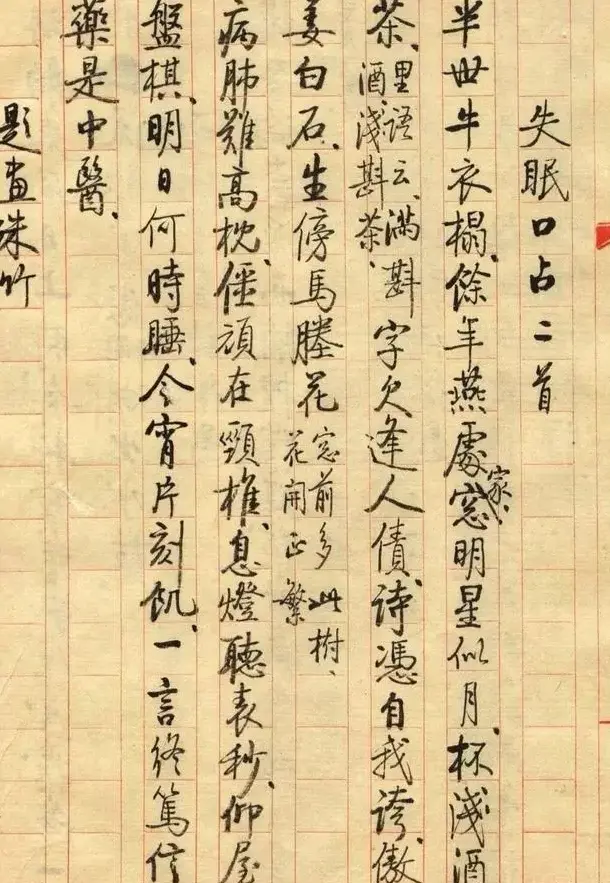 失眠口占二首
半世牛衣榻、餘年燕處窓家、明星似月、杯淺酒
茶、里語云、滿斟酒、淺斟茶、字欠逢人債、詩憑自我誇、傲
姜白石、生傍馬塍花窓前多此樹、花開正繁
病肺難高枕、僵頑在頸椎、息燈聽表秒、仰屋
盤棋、明日何時睡、今宵片刻飢、一言終篤信
藥是中醫、
題畫朱竹